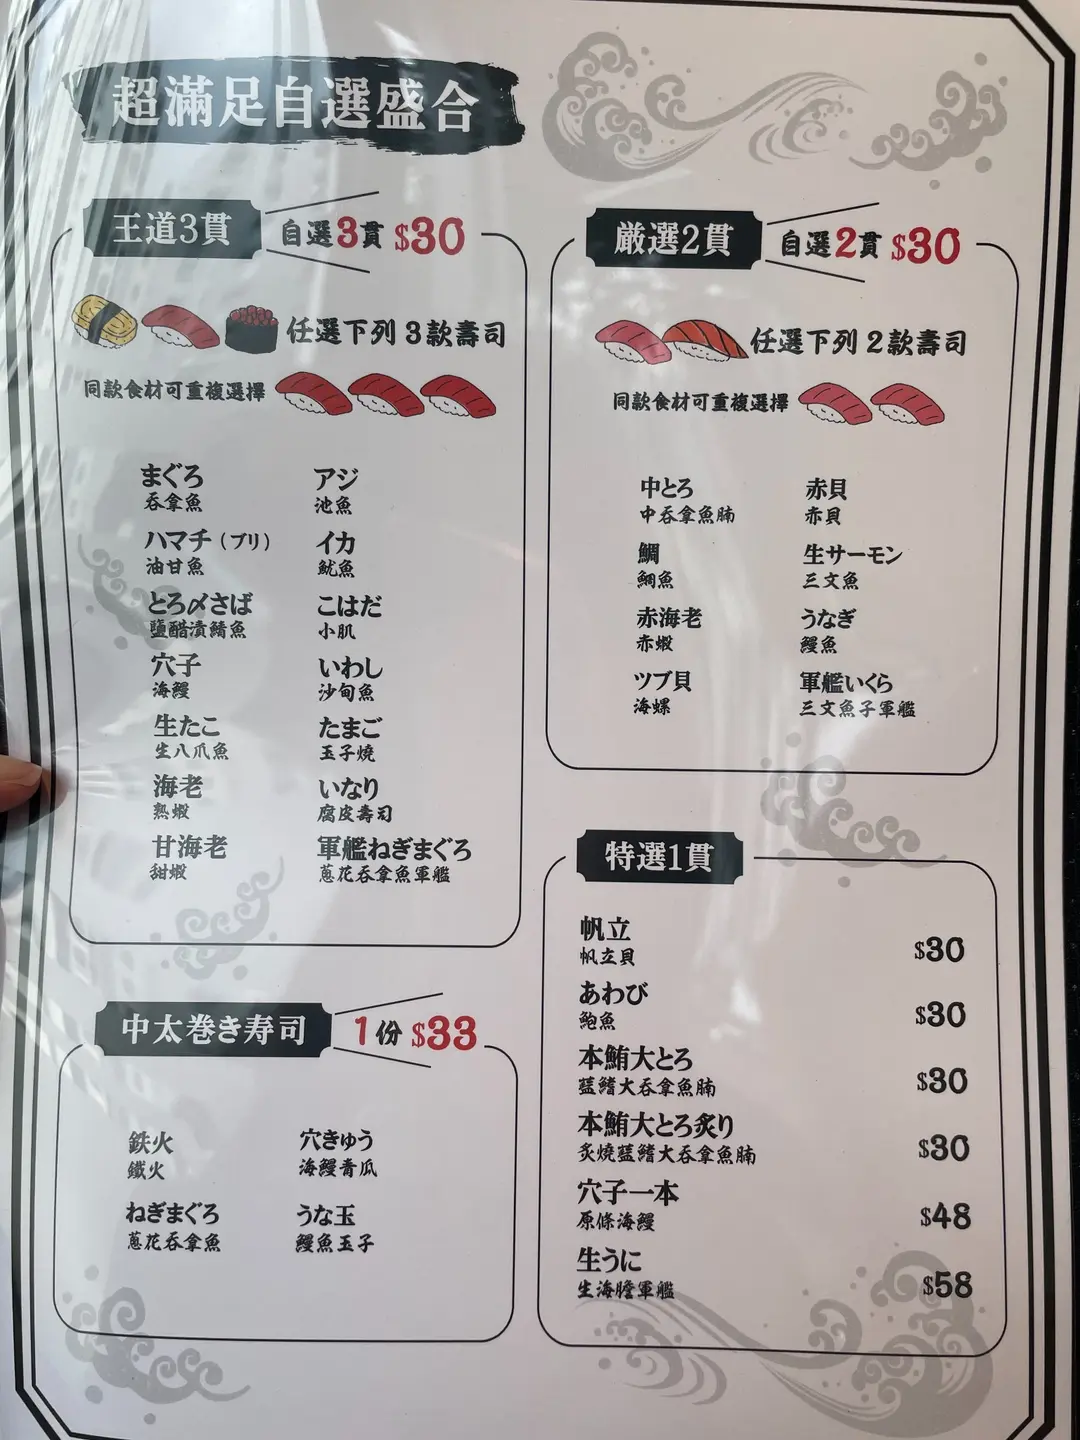 超滿足自選盛合
王道3貫 自選3貫 $30
任選下列 3 款壽司
同款食材可重複選擇
まぐろ
吞拿魚
ハマチ（ブリ）
油甘魚
とろ〆さば
鹽醋漬鯖魚
穴子
海鰻
生たこ
生八爪魚
海老
熟蝦
甘海老
甜蝦
アジ
池魚
イカ
魷魚
こはだ
小肌
いわし
沙甸魚
たまご
玉子燒
いなり
腐皮壽司
軍艦ねぎまぐろ
蔥花吞拿魚軍艦
厳選2貫 自選2貫 $30
任選下列 2 款壽司
同款食材可重複選擇
中とろ
中吞拿魚腩
鯛
鯛魚
赤海老
赤蝦
ツブ貝
海螺
赤貝
赤貝
生サーモン
三文魚
うなぎ
鰻魚
軍艦いくら
三文魚子軍艦
中太巻き寿司 1份 $33
鉄火
鐵火
ねぎまぐろ
蔥花吞拿魚
穴きゅう
海鰻青瓜
うな玉
鰻魚玉子
特選1貫
帆立 $30
帆立貝
あわび $30
鮑魚
本鮪大とろ $30
藍鰭大吞拿魚腩
本鮪大とろ炙り $30
炙燒藍鰭大吞拿魚腩
穴子一本 $48
原條海鰻
生うに $58
生海膽軍艦